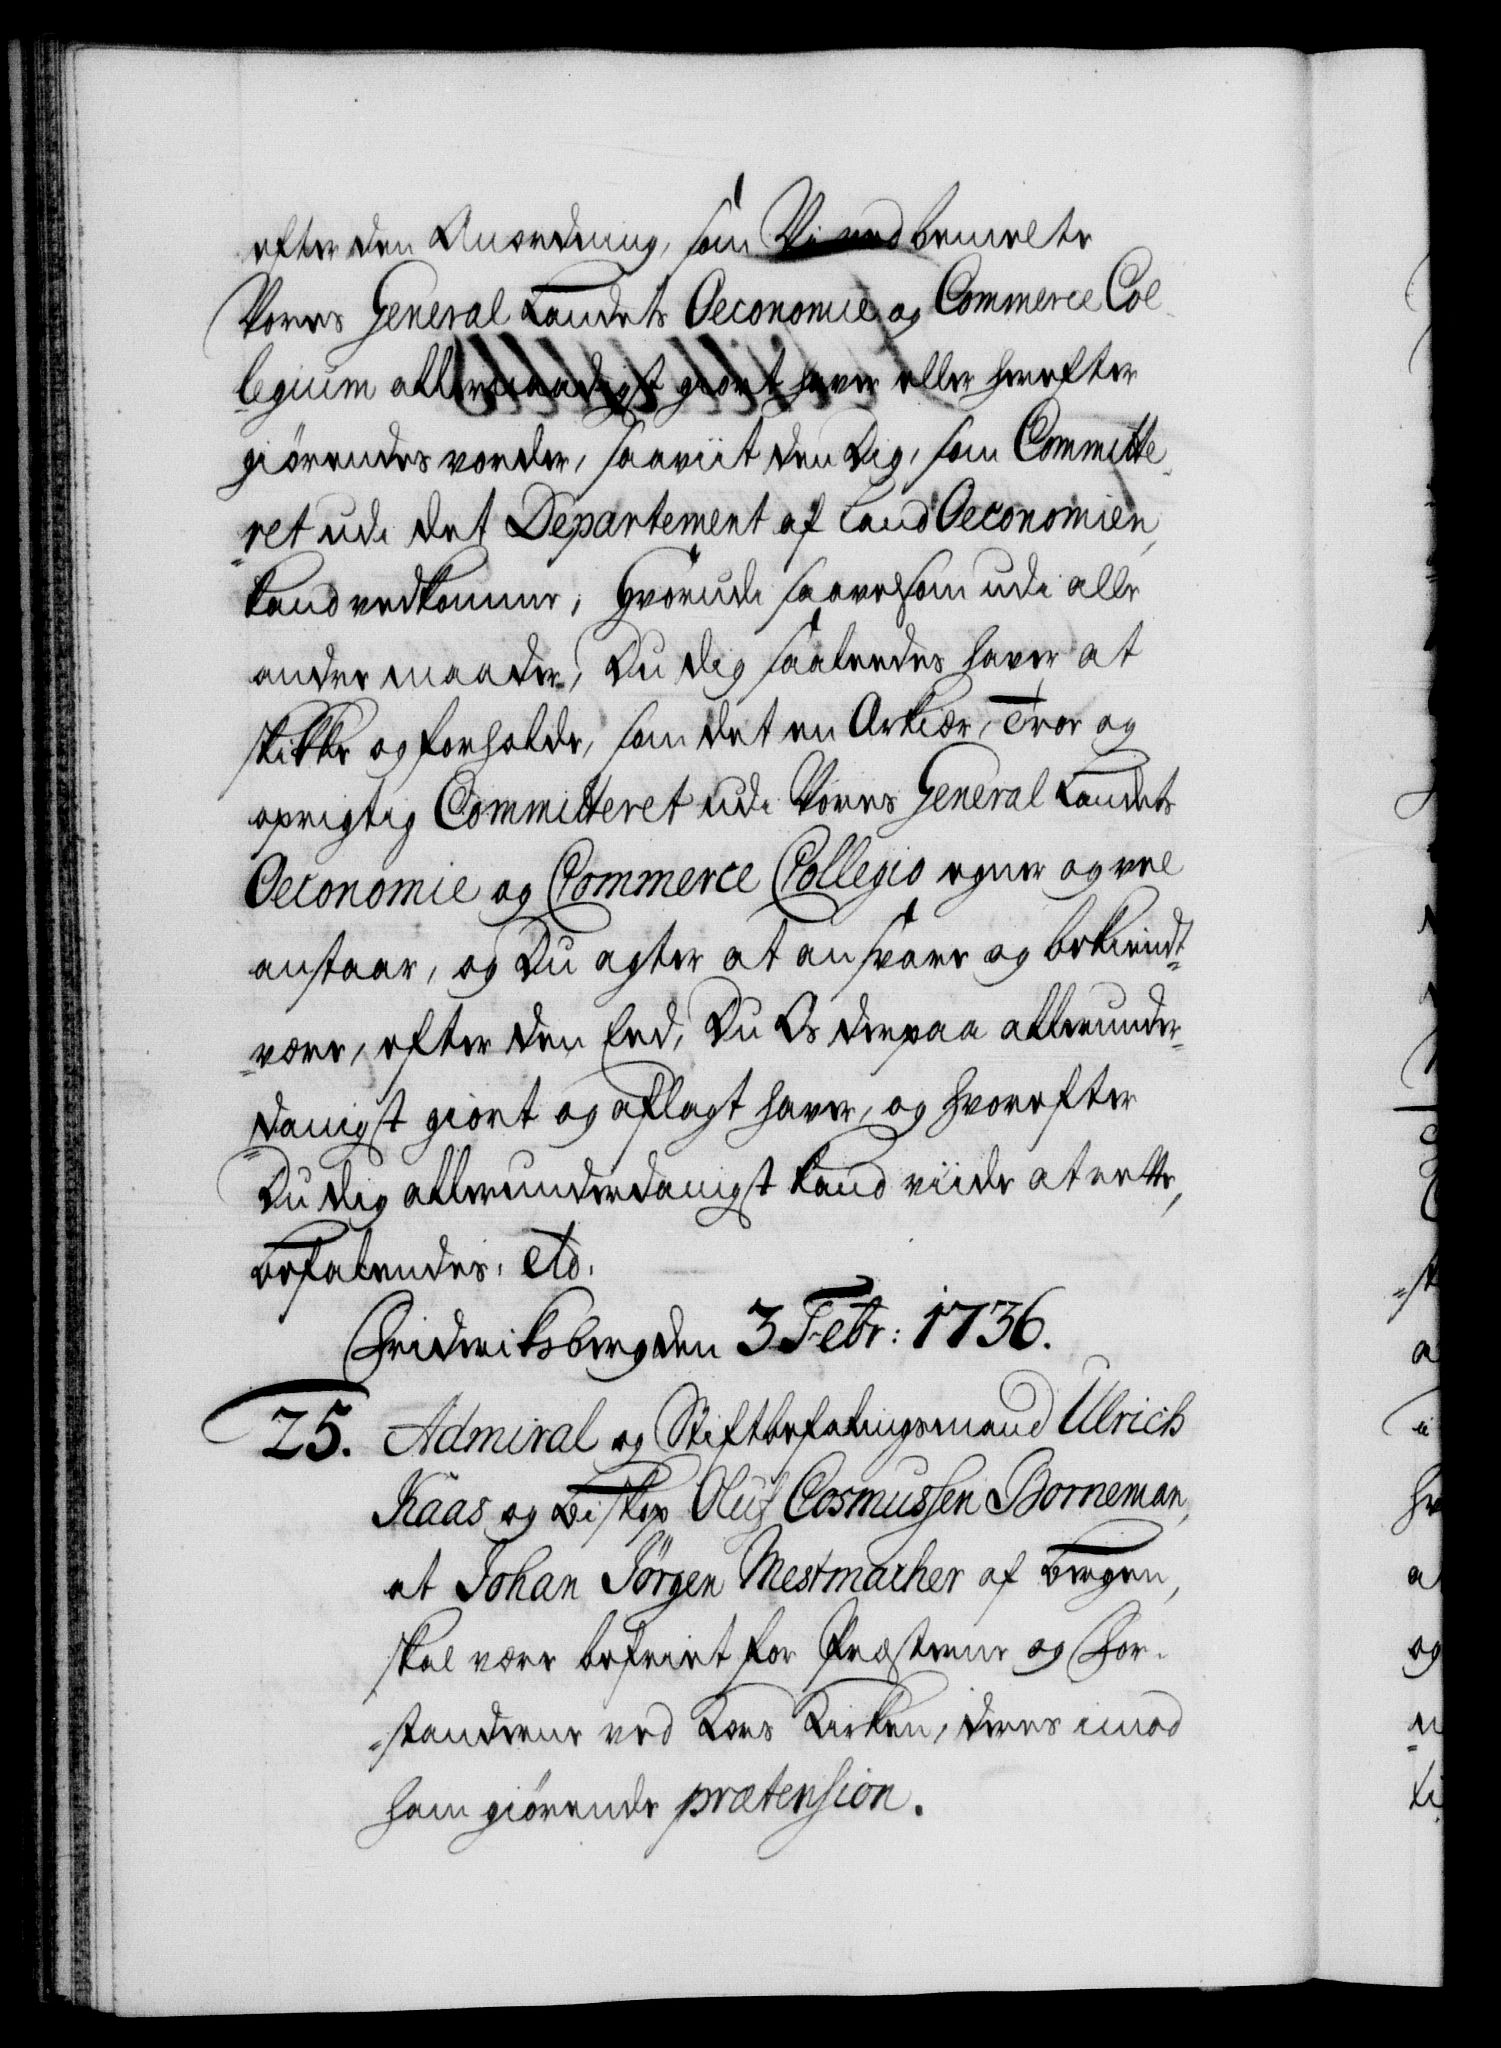 efter den Anordning, som Vi ved bemelte
Vores General Landets Oeconomie og Commerce Col
legium allernaadigst giort haver eller herefter
giørendes vorder, saaviit den Dig, som Committe-
ret udi det Departement af Land Oeconomien,
kand vedkomme, Hvorudi saavelsom udi alle
andre maader, Du dig saaledes haver at
skikke og forholde, som det en Ærkiær, Troe og
oprigtig Committeret udi Vores General Landets
Oeconomie og Commerce Collegio egner og vel
anstaar, og Du agter at ansvare og bekiendt
være, efter den Eed, Du Os derpaa allerunder-
danigst giort og aflagt haver, og hvorefter
Du dig allerunderdanigst kand viide at rette,
Befalendes, etc.
Friderichsberg den 3 Febr: 1736.
25. Admiral og Stiftbefalingsmand Ulrich
Kaas og Biskop Oluf Cosmussen Borneman,
at Johan Jörgen Mestmacher af Bergen,
skal være befriet for Præsterne og For-
standerne ved Kors Kirken, deres imod
ham giørende prætension.